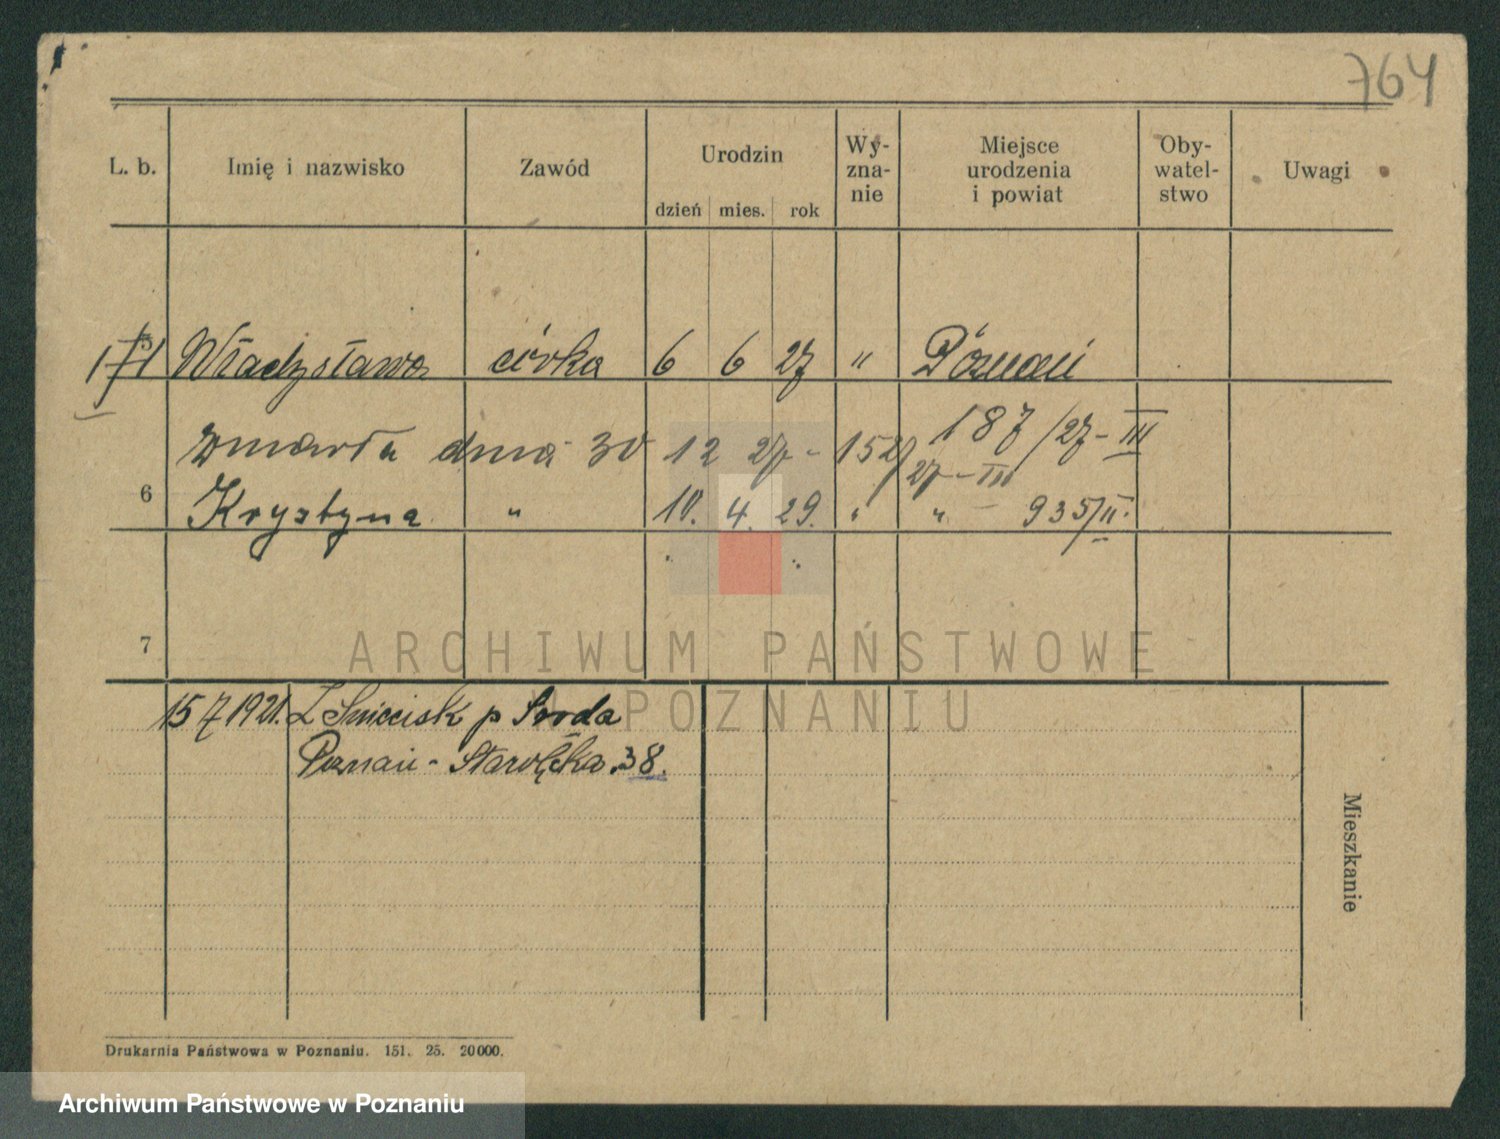 764
L. b. Imię i nazwisko Zawód Urodzin Wy-zna-nie Miejsce urodzenia i powiat Oby-watel-stwo Uwagi
dzień mies. rok
Władysława córka 6 6 27 " Poznań
zmarła dnia 30 12 27 - 152/27-III 187/27-III
6 Krystyna " 10. 4. 29. " " - 935/II.
7
ARCHIWUM PAŃSTWOWE
POZNANIU
15 7 1921. Z Śniecisk p Środa
Poznań - Starołęka 38.
Mieszkanie
Drukarnia Państwowa w Poznaniu. 151. 25. 20000.
Archiwum Państwowe w Poznaniu